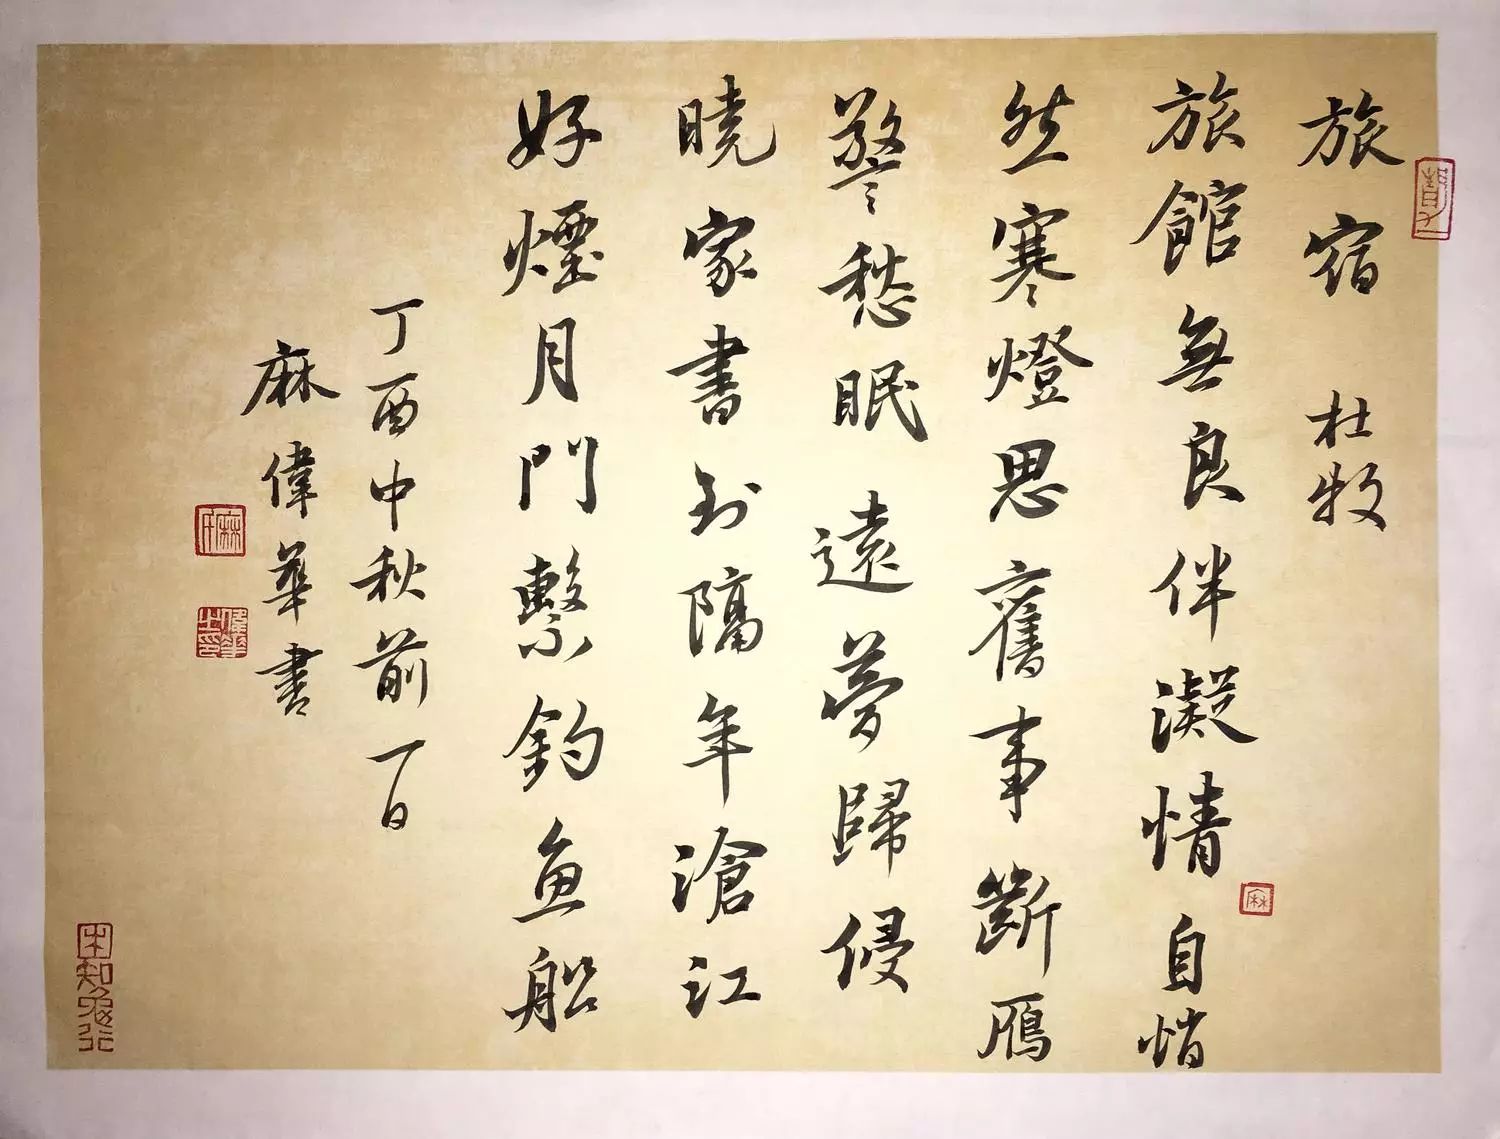 旅宿 杜牧
旅館無良伴凝情自悄
然寒燈思舊事斷雁
警愁眠遠夢歸侵
曉家書到隔年滄江
好煙月門繫釣魚船
丁酉中秋前一日
麻偉華書
麻氏
偉華之印
麻